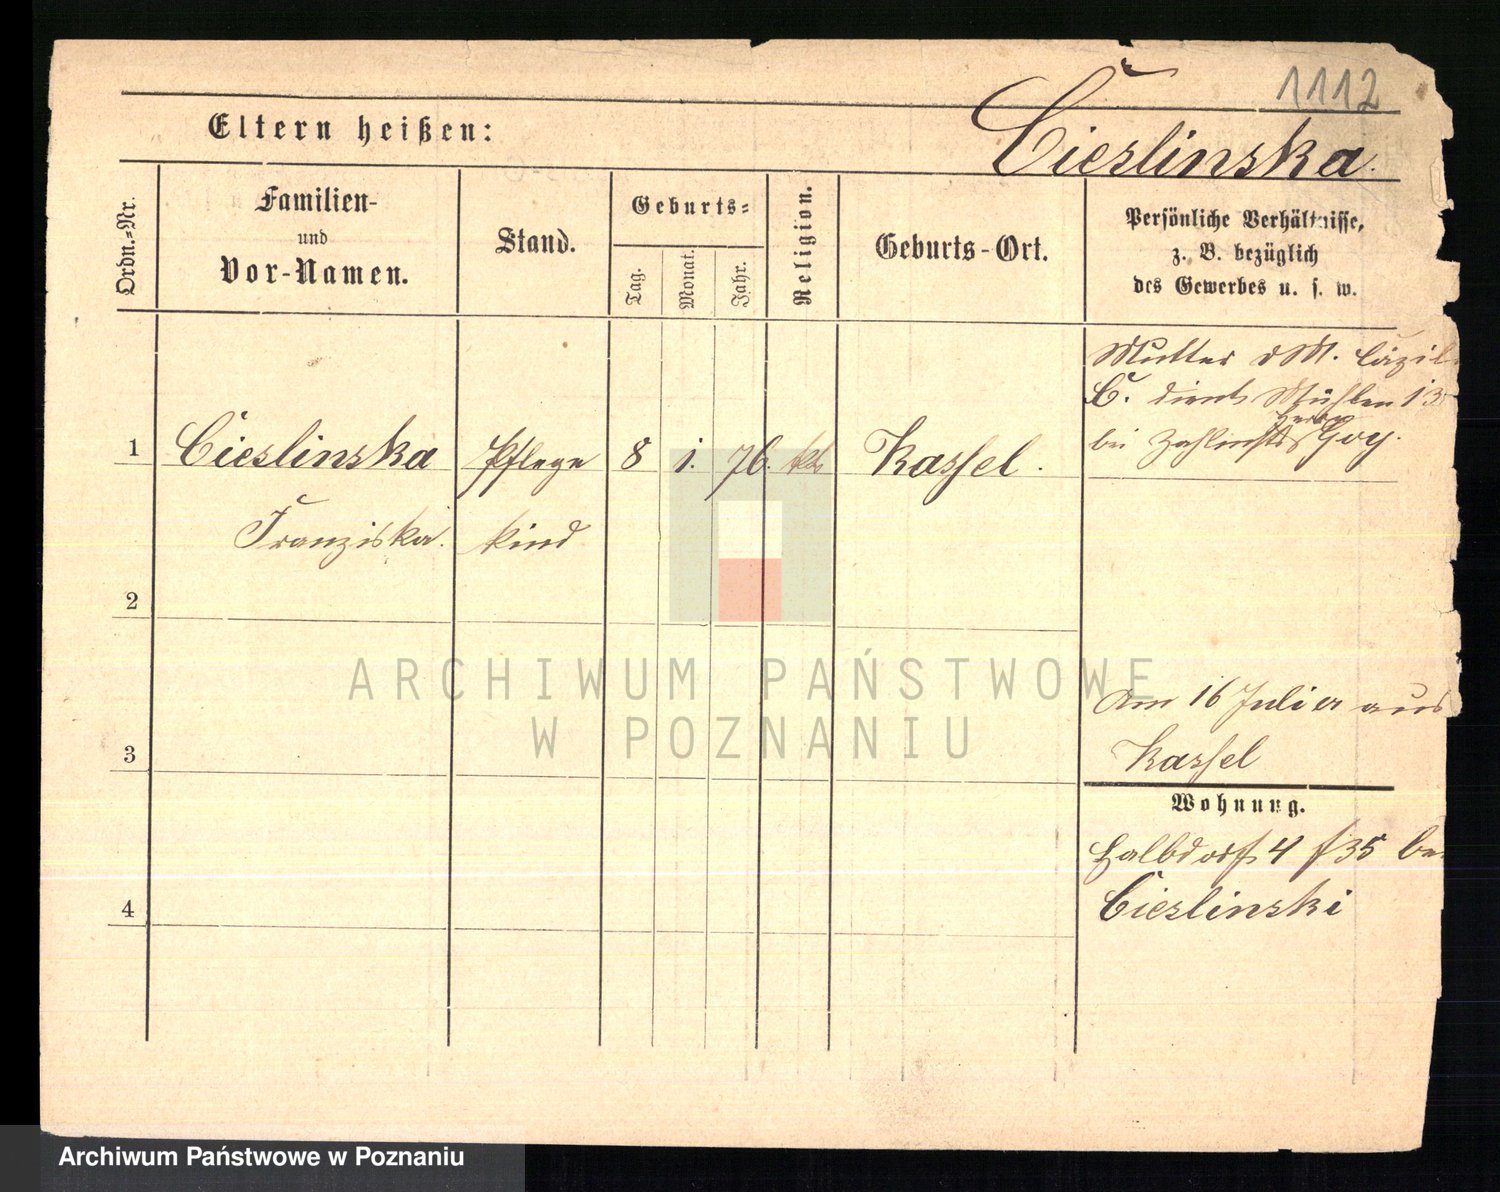 1112
Eltern heißen:
Cieslinska.
Ordn.-Nr.
Familien-
und
Vor-Namen.
Stand.
Geburts-
Tag.
Monat.
Jahr.
Religion.
Geburts-Ort.
Persönliche Verhältnisse,
z. B. bezüglich
des Gewerbes u. s. w.
Mutter
C. dient Mühlen 13
bei
1
Cieslinska
Pflege
8
1.
76.
Kassel.
Franziska.
kind
2
3
Am 16 Juli aus
Kassel
Wohnung.
Halbdorf 4 35
Cieslinski
4
ARCHIWUM PAŃSTWOWE
W POZNANIU
Archiwum Państwowe w Poznaniu